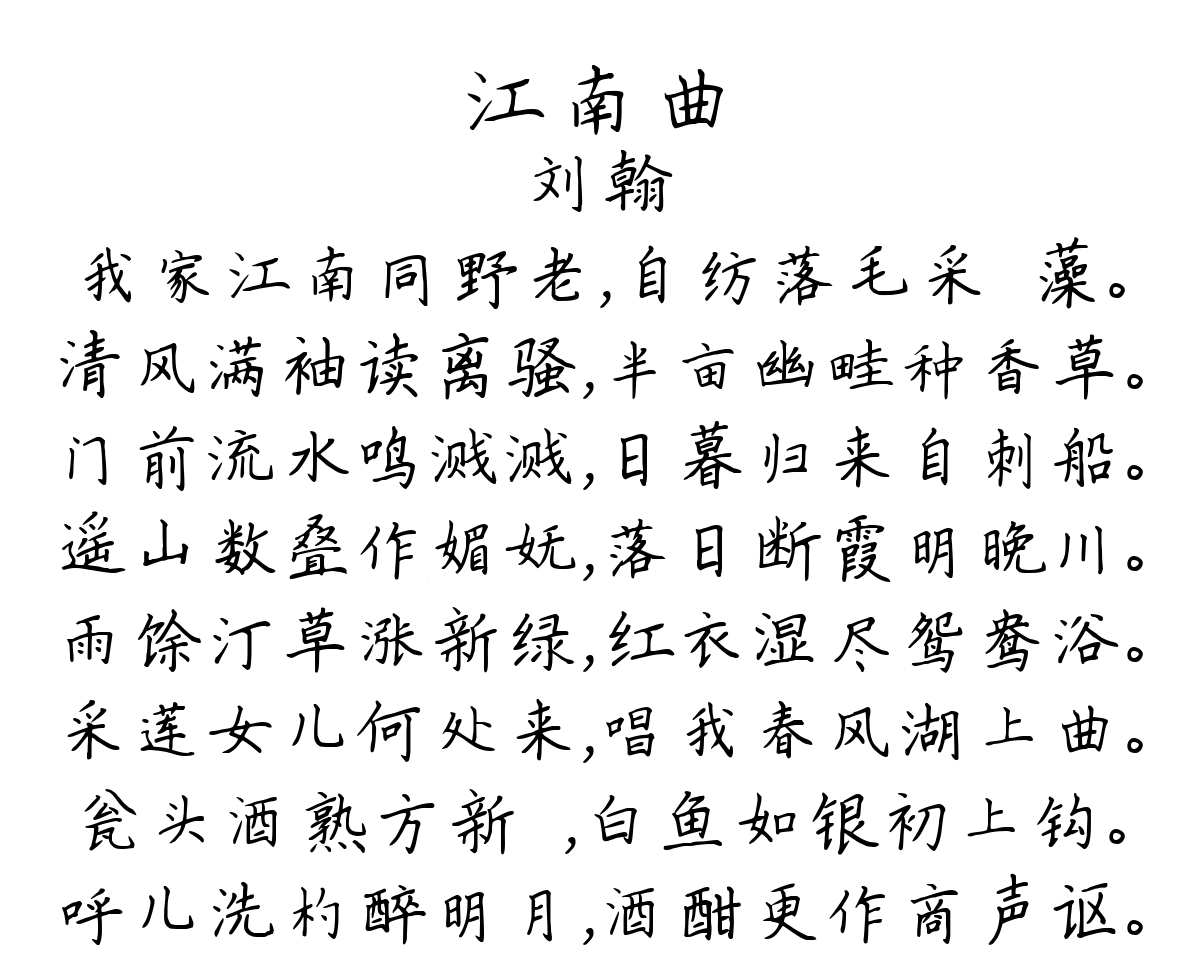 江南曲
刘翰
我家江南同野老,自纺落毛采 藻。
清风满袖读离骚,半亩幽畦种香草。
门前流水鸣溅溅,日暮归来自刺船。
遥山数叠作媚妩,落日断霞明晚川。
雨馀汀草涨新绿,红衣湿尽鸳鸯浴。
采莲女儿何处来,唱我春风湖上曲。
瓮头酒熟方新 ,白鱼如银初上钩。
呼儿洗杓醉明月,酒酣更作商声讴。